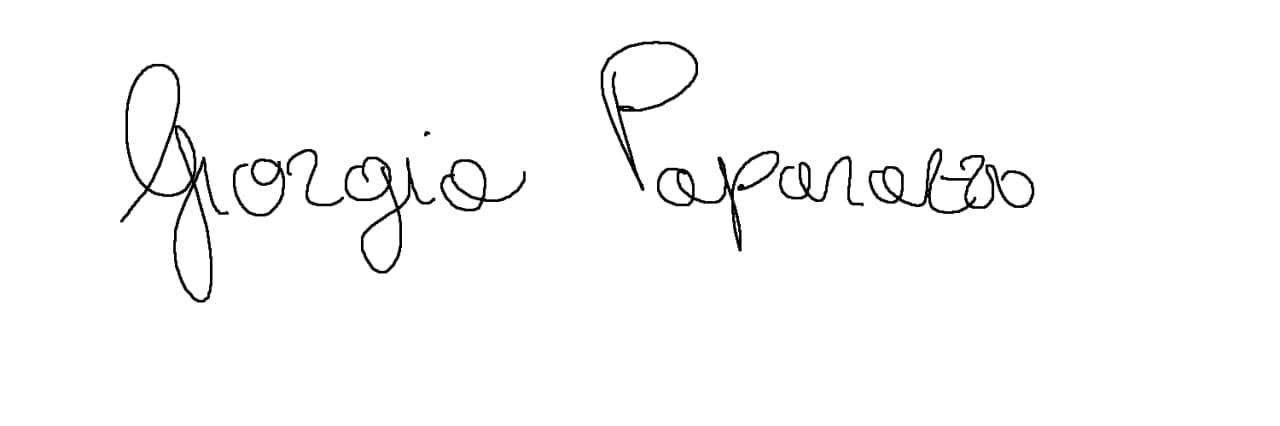 Giorgia Paparatzo